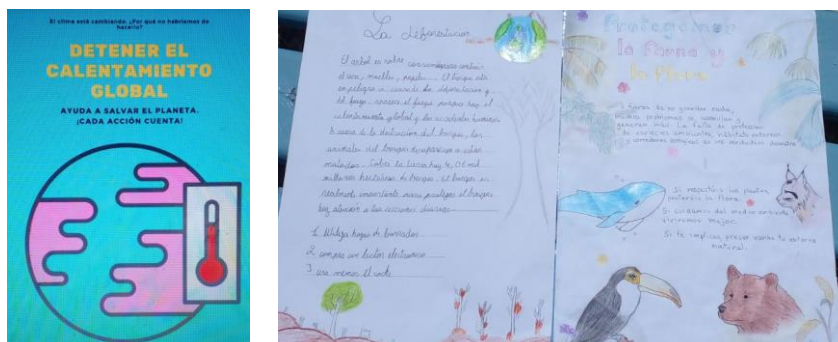 El clima está cambiando. ¿Por qué no habríamos de
hacerlo?
DETENER EL
CALENTAMIENTO
GLOBAL
AYUDA A SALVAR EL PLANETA.
¡CADA ACCIÓN CUENTA!
La deforestación
El árbol es noble
el uso, muebles, papel El bosque esta
en peligro a causa de la deforestacion y
del fuego. el fuego porque hay el
calentamiento global y los accidentes humanos
A causa de la destrucción del bosque, los
animales del bosque desaparecen o estan
matados. Sobre la tierra hay 4,06 mil
millones hectáreas de bosque. El bosque es
realmente importante para proteger el bosque
hay atención a las acciones diarias
1. Utiliza hojas de borrador
2. compra un lector electronico
3. usa menos el coche
Protegemos
la Fauna y
la Flora
A fuerza de no guardar nada,
muchos problemas se asemillan y
generan más. La falta de proteccion
de especies ambientes, hábitats naturales
y corredores
Si respetáis las pautas,
protegéis la flora.
Si cuidamos del medio ambiente
viviremos mejor.
Si te implicas, preservarás tu entorno
natural.